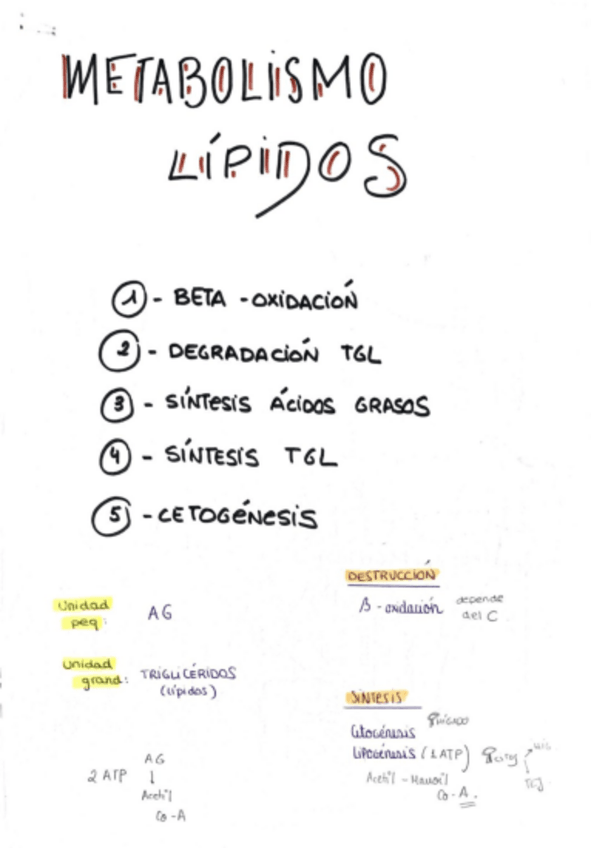 METABOLISMO
LÍPIDOS
1 - BETA - OXIDACIÓN
2 - DEGRADACIÓN TGL
3 - SÍNTESIS ÁCIDOS GRASOS
4 - SÍNTESIS TGL
5 - CETOGÉNESIS
Unidad peq: AG
Unidad grand: TRIGLICÉRIDOS
(lípidos)
2 ATP AG
↓
Acetil
Co-A
DESTRUCCIÓN
β - oxidación depende
del C
SÍNTESIS
HÍGADO
Lipogénesis (1 ATP)
Co-A.